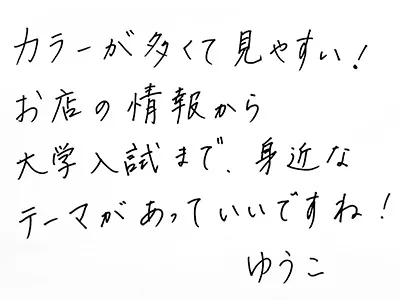 カラーが多くて見やすい!
お店の情報から
大学入試まで、身近な
テーマがあっていいですね!
ゆうこ